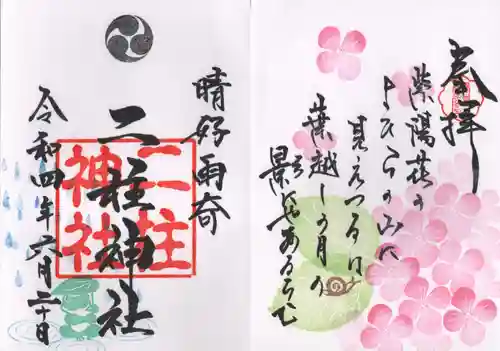 奉拝
紫陽花の
よひらの山に
見えつるは
葉越しの月の
影にやあるらむ
晴好雨奇
二柱神社
二柱神社
令和四年六月二十日